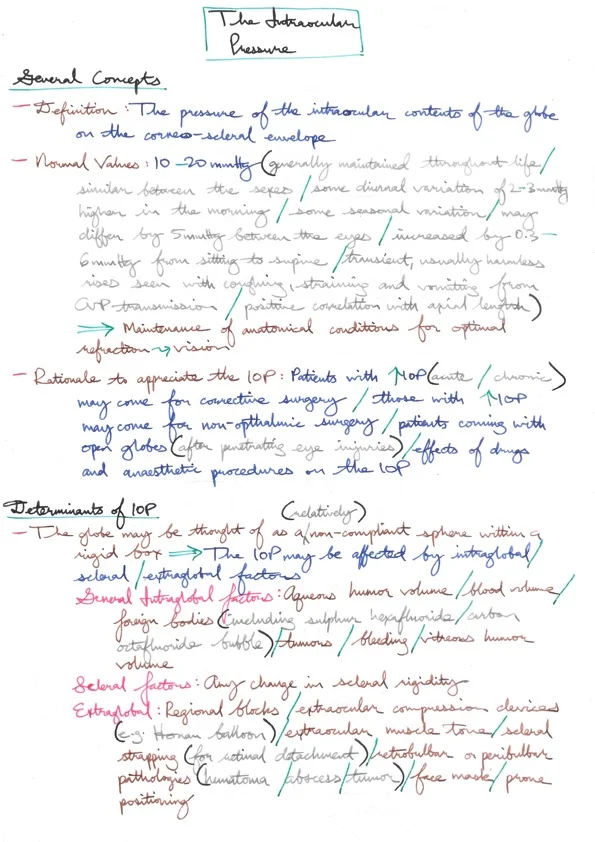 The Intraocular
Pressure
General Concepts
– Definition : The pressure of the intraocular contents of the globe
on the corneo-scleral envelope
– Normal Values : 10 – 20 mmHg (generally maintained throughout life/
similar between the sexes / some diurnal variation of 2-3 mmHg
higher in the morning / some seasonal variation / may
differ by 5mmHg between the eyes / increased by 0.3 –
6mmHg from sitting to supine / transient, usually harmless
rises seen with coughing, straining and vomiting from
CVP transmission / positive correlation with axial length)
⇒ Maintenance of anatomical conditions for optimal
refraction → vision
– Rationale to appreciate the IOP : Patients with ↑IOP (acute / chronic)
may come for corrective surgery / those with ↑IOP
may come for non-opthalmic surgery / patients coming with
open globes (after penetrating eye injuries) / effects of drugs
and anaesthetic procedures on the IOP
Determinants of IOP
(relatively)
– The globe may be thought of as a/non-compliant sphere within a
rigid box ⇒ The IOP may be affected by intraglobal/
scleral / extraglobal factors
General Intraglobal factors : Aqueous humor volume / blood volume /
foreign bodies (including sulphur hexafluoride / carbon
octafluoride bubble) / tumors / bleeding / vitreous humor
volume
Scleral factors : Any change in scleral rigidity
Extraglobal : Regional blocks / extraocular compression devices
(e.g. Honan balloon) / extraocular muscle tone / scleral
strapping (for retinal detachment) / retrobulbar or peribulbar
pathologies (hematoma / abscess / tumor) / face mask / prone
positioning